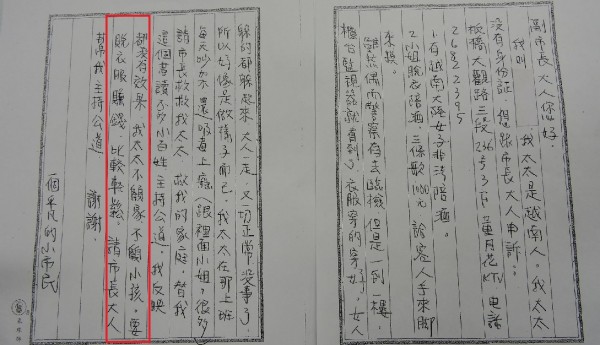 副市長大人您好
我叫　　我太太是越南人。我太太
沒有身份證，但跟市長大人申訴：
板橋大觀路三段236号3F 董月花KTV 電話
26822395
1.有越南大陸女子非法陪酒。
2.小姐脫衣陪酒，三條歌1000元 給客人手來腳
來投。
雖然偶尔警察有去臨檢，但是一到一樓，
櫃台監視器就看到了，衣服穿的穿好，女人
躲的都躲起來 大人一走，又切正常沒事了
所以好像是做樣子而已，我太太在那上班
每天吵如不還 吸毒上癮（跟裡面小姐，很多
請市長救救我太太 救我的家庭，替我
這個書讀不多小百姓 主持公道，我反映
都沒有效果 我太太不顧家不顧小孩，要
脫衣服賺錢，比較輕鬆。請市長大人
幫我主持公道。　謝謝。
一個平凡的小市民